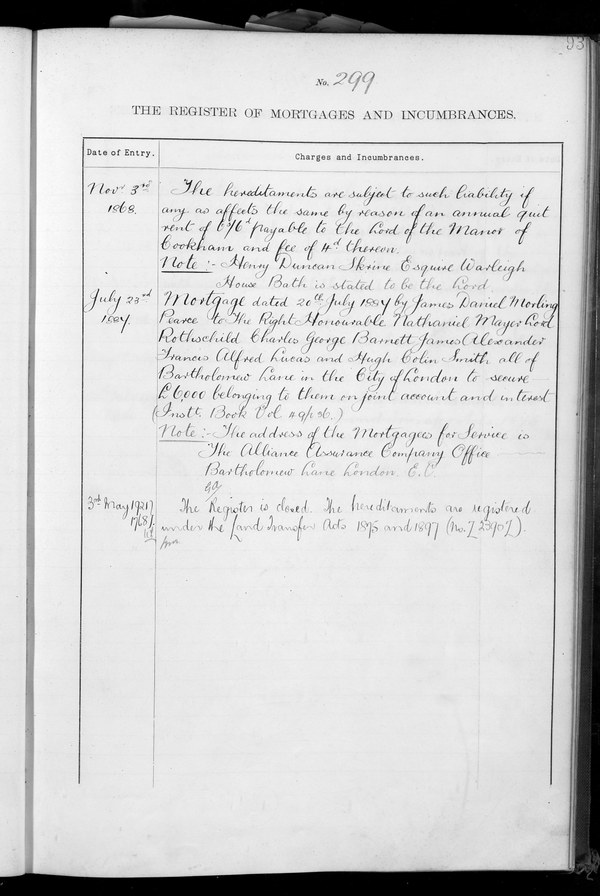 93
No. 299
THE REGISTER OF MORTGAGES AND INCUMBRANCES.
Date of Entry.
Charges and Incumbrances.
Novr 3rd
1868.
The hereditaments are subject to such liability if
any as affects the same by reason of an annual quit
rent of 6s/6d payable to the Lord of the Manor of
Cookham and fee of 4d. thereon.
Note :- Henry Duncan Skrine Esquire Warleigh
House Bath is stated to be the Lord.
July 23rd
1887.
Mortgage dated 20th July 1887 by James Daniel Morling
Pearce to The Right Honourable Nathaniel Mayer Lord
Rothschild Charles George Barnett James Alexander
Francis Alfred Lucas and Hugh Colin Smith all of
Bartholomew Lane in the City of London to secure
£6,000 belonging to them on joint account and interest
(Instt. Book Vol 49/p36.)
Note :- The address of the Mortgagees for Service is
The Alliance Assurance Company Office
Bartholomew Lane London. E.C.
3rd May 1921
The Register is closed. The hereditaments are registered
under the Land Transfer Acts 1875 and 1897 (No. T 2390T).